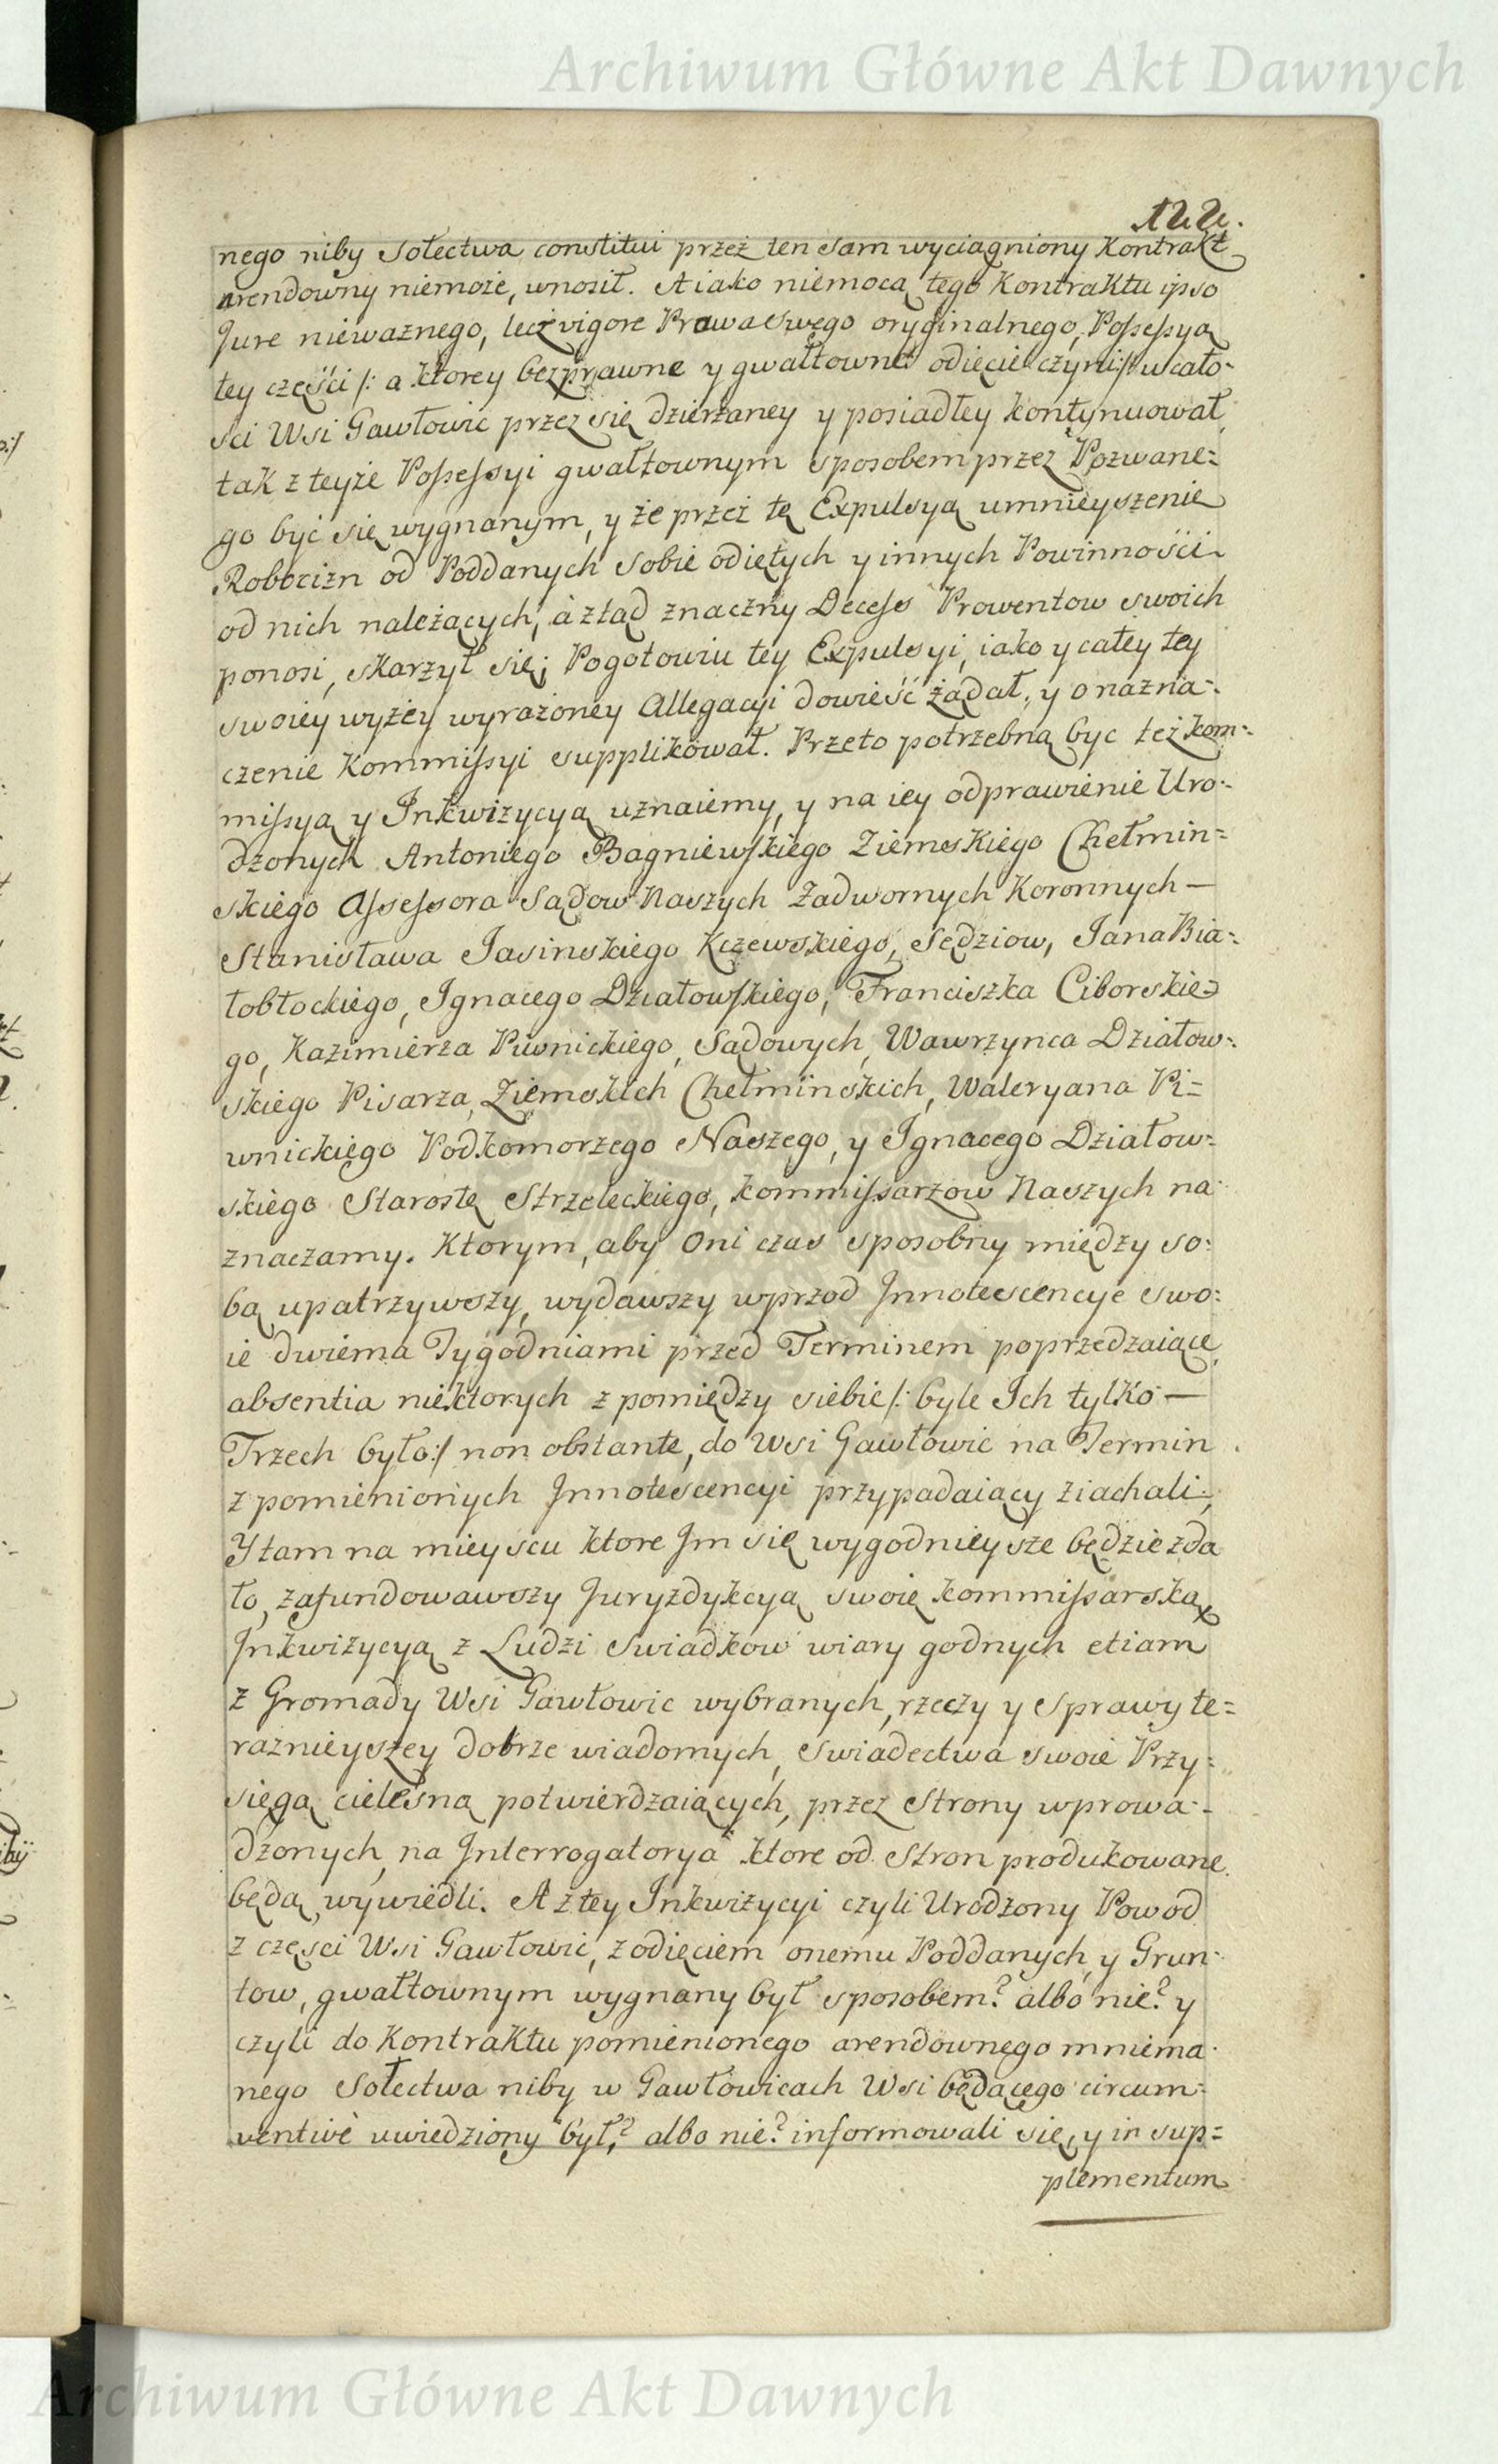 Archiwum Główne Akt Dawnych
122.
nego niby Sołectwa constitui przez ten sam wyciągniony Kontrakt
arendowny niemoże, wnosił. A iako niemocą tego Kontraktu ipso
Jure nieważnego, lecz vigore Prawa swego oryginalnego, Possessyą
tey części /: a ktorey bezprawne y gwałtowne odięcie czyni :/ w cało-
sci Wsi Gawłowic przez się dzierżaney y posiadłey kontynuował,
tak z teyże Possessyi gwałtownym sposobem przez Pozwane=
go być się wygnanym, y że przez tę Expulsyą umnieyszenie
Robocizn od Poddanych sobie odiętych y innych Powinności
od nich należących, à ztąd znaczny Decess Prowentow swoich
ponosi, skarżył się; Pogotowiu tey Expulsyi, iako y całey tey
swoiey wyżey wyrażoney Allegacyi dowieść żądał, y o nazna-
czenie Kommissyi supplikował. Przeto potrzebną byc też kom=
missyą y Inkwizycyą uznaiemy, y na iey odprawienie Uro-
dzonych Antoniego Bagniewskiego Ziemskiego Chełmin=
skiego Assessora Sądow Naszych Zadwornych Koronnych —
Stanisława Jasinskiego Kczewskiego, Sędziow, Jana Bia-
łobłockiego, Ignacego Działowskiego, Franciszka Ciborskie=
go, Kazimierza Piwnickiego, Sądowych, Wawrzynca Działow-
skiego Pisarza, Ziemskich Chełminskich, Waleryana Pi=
wnickiego Podkomorzego Naszego, y Ignacego Działow=
skiego Starostę Strzeleckiego, kommissarzow Naszych na-
znaczamy. Ktorym, aby Oni czas sposobny między so-
bą upatrzywszy, wydawszy wprzod Innotescencye swo-
ie dwiema Tygodniami przed Terminem poprzedzaiące,
absentia niektorych z pomiędzy siebie /: byle Ich tylko —
Trzech było :/ non obstante, do Wsi Gawłowic na Termin
z pomienionych Innotescencyi przypadaiący ziachali;
Y tam na mieyscu ktore Im się wygodnieysze będzie zda
ło, zafundowawszy Juryzdykcyą swoię kommissarską
Inkwizycyą z Ludzi Swiadkow wiary godnych etiam
z Gromady Wsi Gawłowic wybranych, rzeczy y sprawy te=
raznieyszey dobrze wiadomych, swiadectwa swoie Przy-
sięgą cielesną potwierdzaiących, przez Strony wprowa-
dzonych, na Interrogatorya ktore od Stron produkowane
będą, wywiedli. A z tey Inkwizycyi czyli Urodzony Powod
z częsci Wsi Gawłowic, z odięciem onemu Poddanych, y Grun-
tow, gwałtownym wygnany był sposobem? albo nie? y
czyli do Kontraktu pomienionego arendownego mniema-
nego Sołectwa niby w Gawłowicach Wsi będącego circum=
ventive uwiedziony był? albo nie? informowali się, y in sup=
plementum
Archiwum Główne Akt Dawnych